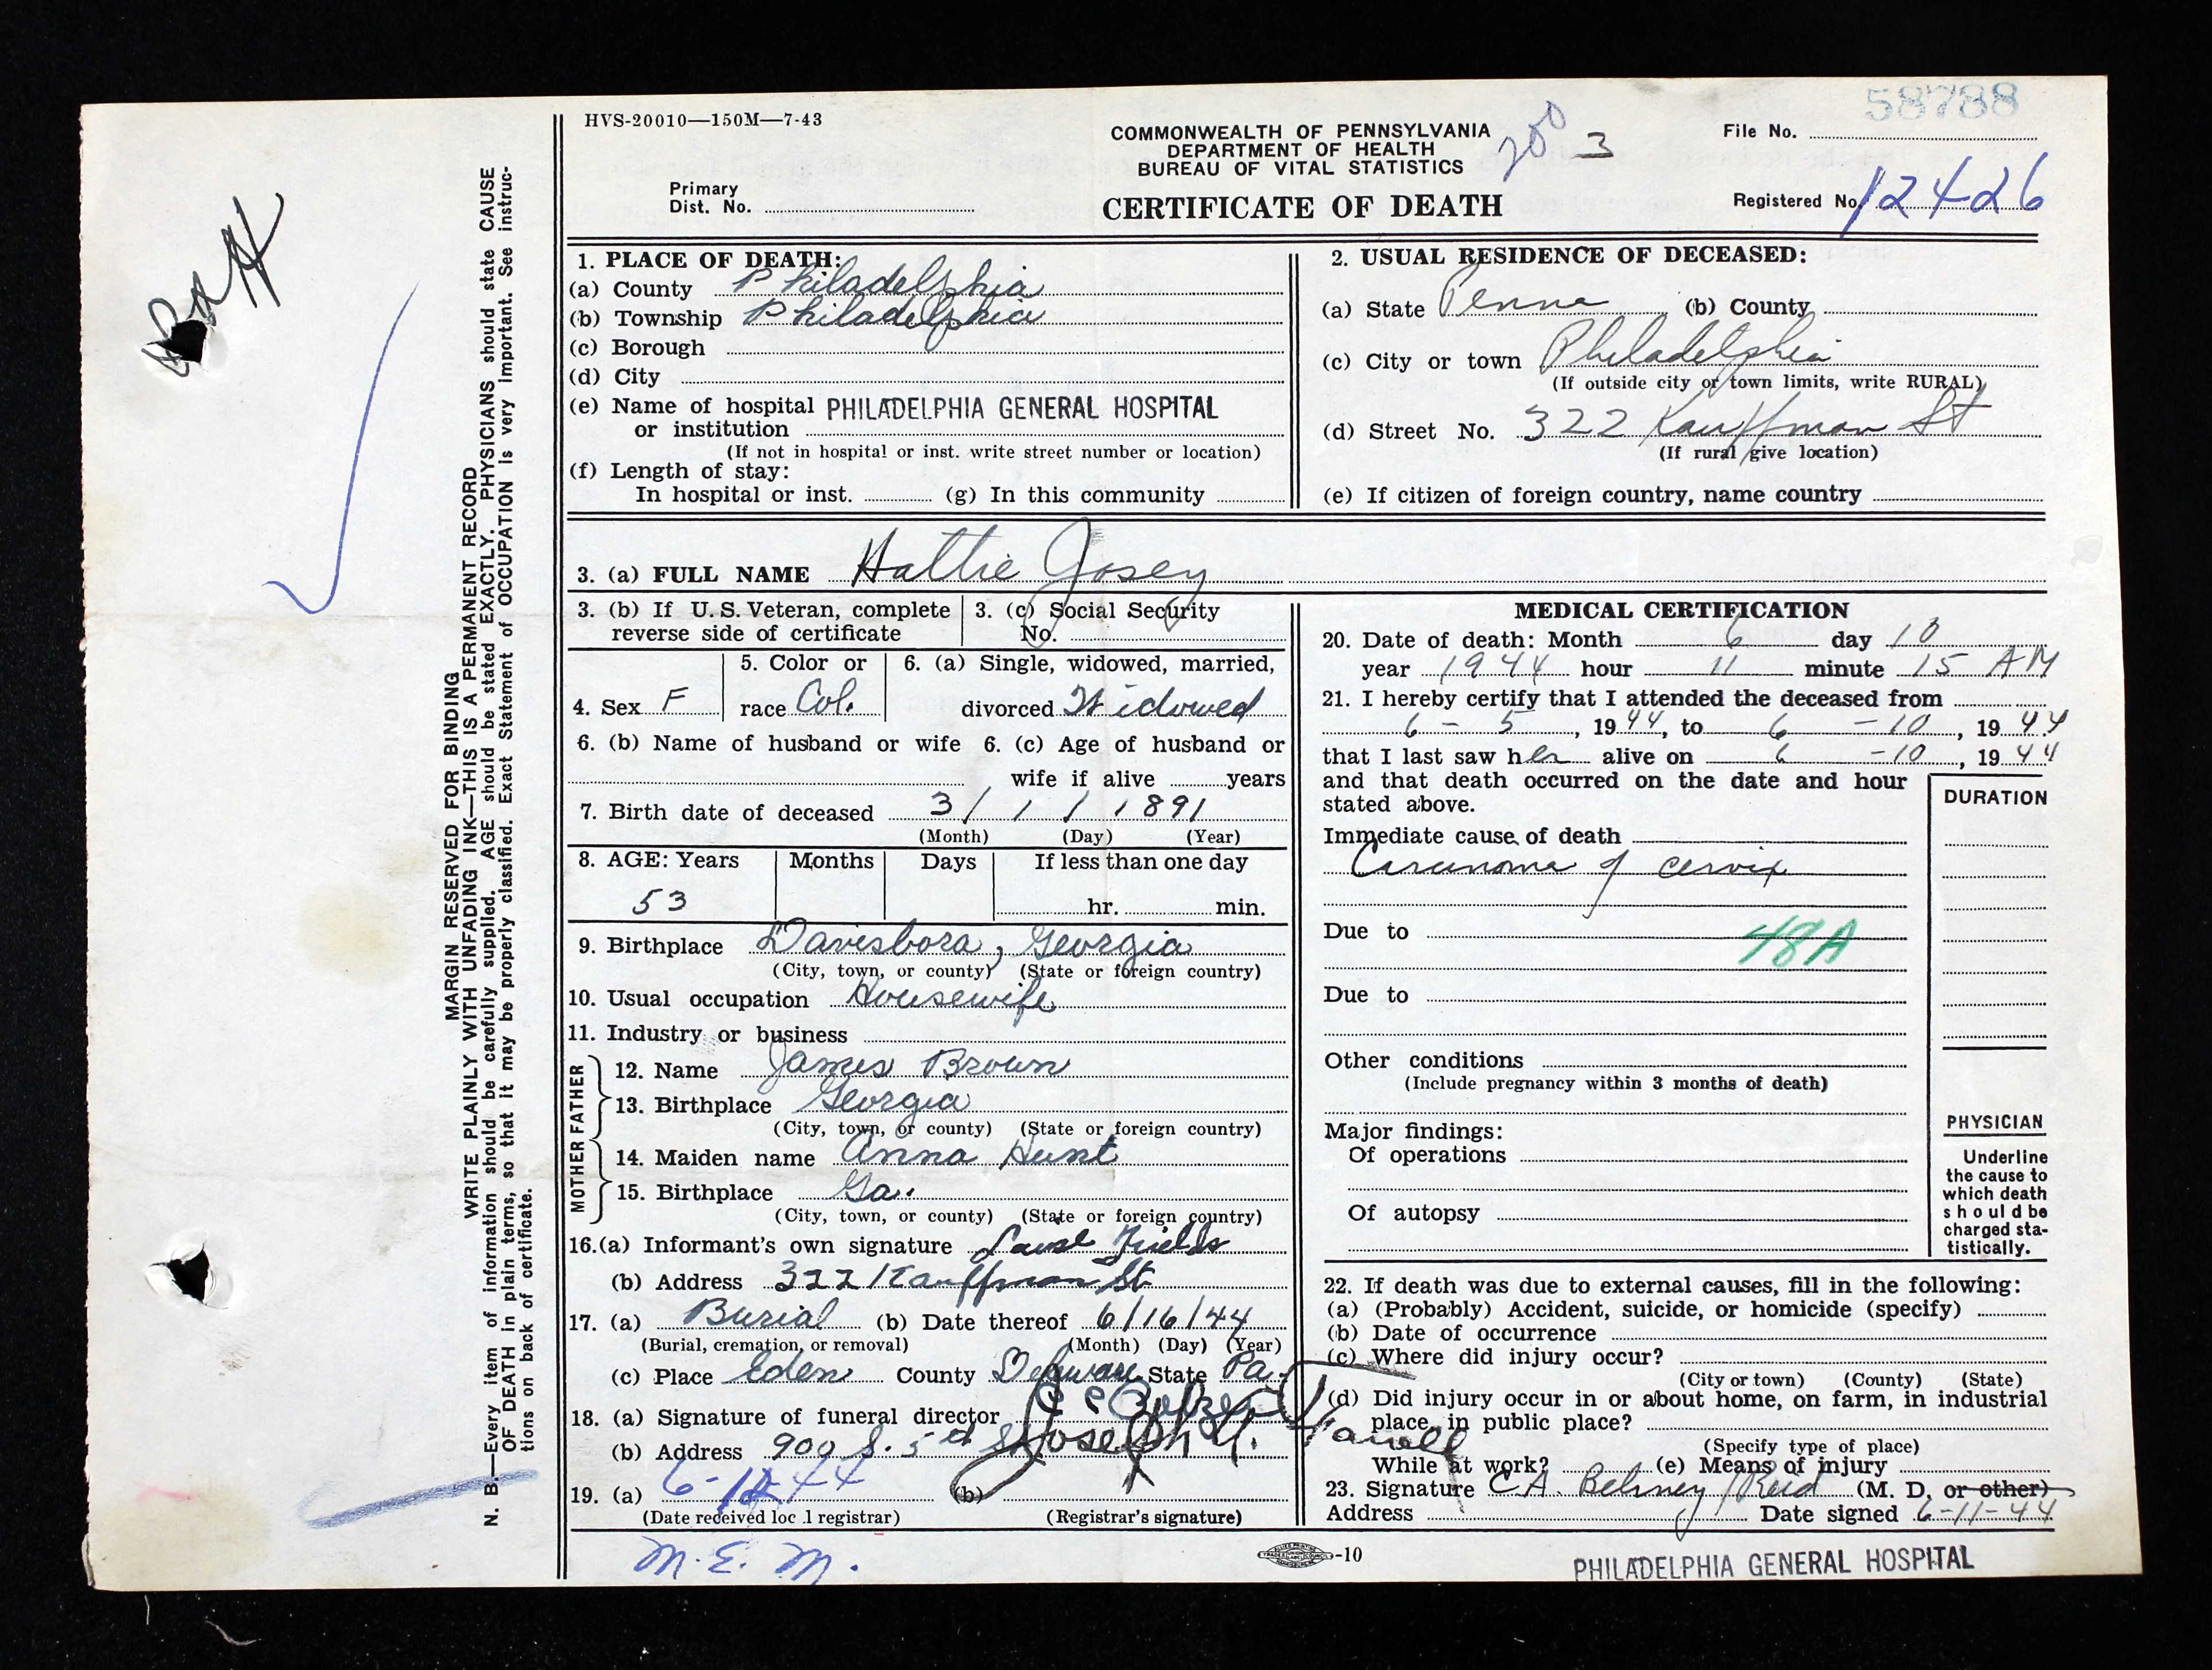 58788
HVS-20010—150M—7-43
COMMONWEALTH OF PENNSYLVANIA
DEPARTMENT OF HEALTH
BUREAU OF VITAL STATISTICS
3
File No.
Primary
Dist. No.
CERTIFICATE OF DEATH
Registered No. 12426
MARGIN RESERVED FOR BINDING
WRITE PLAINLY WITH UNFADING INK—THIS IS A PERMANENT RECORD
N. B.—Every item of information should be carefully supplied. AGE should be stated EXACTLY. PHYSICIANS should state CAUSE
OF DEATH in plain terms, so that it may be properly classified. Exact Statement of OCCUPATION is very important. See instruc-
tions on back of certificate.
1. PLACE OF DEATH:
(a) County Philadelphia
(b) Township Philadelphia
(c) Borough
(d) City
(e) Name of hospital PHILADELPHIA GENERAL HOSPITAL
or institution
(If not in hospital or inst. write street number or location)
(f) Length of stay:
In hospital or inst. (g) In this community
2. USUAL RESIDENCE OF DECEASED:
(a) State Penna (b) County
(c) City or town Philadelphia
(If outside city or town limits, write RURAL)
(d) Street No. 322 Kauffman St
(If rural give location)
(e) If citizen of foreign country, name country
3. (a) FULL NAME Hattie Josey
3. (b) If U. S. Veteran, complete
reverse side of certificate
3. (c) Social Security
No.
4. Sex F
5. Color or
race Col.
6. (a) Single, widowed, married,
divorced Widowed
6. (b) Name of husband or wife
6. (c) Age of husband or
wife if alive years
7. Birth date of deceased 3 / 1 / 1891
(Month) (Day) (Year)
8. AGE: Years Months Days If less than one day
53 hr. min.
9. Birthplace Davisboro, Georgia
(City, town, or county) (State or foreign country)
10. Usual occupation Housewife
11. Industry or business
FATHER
12. Name James Brown
13. Birthplace Georgia
(City, town, or county) (State or foreign country)
MOTHER
14. Maiden name Anna Hunt
15. Birthplace Ga.
(City, town, or county) (State or foreign country)
16.(a) Informant's own signature Fields
(b) Address 322 Kauffman St
17. (a) Burial (b) Date thereof 6/16/44
(Burial, cremation, or removal) (Month) (Day) (Year)
(c) Place Eden County Delaware State Pa.
18. (a) Signature of funeral director
(b) Address 900 S. 5
Joseph
19. (a) 6-12-44 (b)
(Date received loc l registrar) (Registrar's signature)
M. E. M.
MEDICAL CERTIFICATION
20. Date of death: Month 6 day 10
year 1944 hour 11 minute 15 AM
21. I hereby certify that I attended the deceased from
6 - 5, 1944, to 6 - 10, 1944
that I last saw her alive on 6 - 10, 1944
and that death occurred on the date and hour
stated above.
DURATION
Immediate cause of death
Carcinoma of cervix
Due to
48A
Due to
Other conditions
(Include pregnancy within 3 months of death)
Major findings:
Of operations
Of autopsy
PHYSICIAN
Underline
the cause to
which death
should be
charged sta-
tistically.
22. If death was due to external causes, fill in the following:
(a) (Probably) Accident, suicide, or homicide (specify)
(b) Date of occurrence
(c) Where did injury occur?
(City or town) (County) (State)
(d) Did injury occur in or about home, on farm, in industrial
place, in public place?
(Specify type of place)
While at work? (e) Means of injury
23. Signature C A. Reid (M. D. or other)
Address Date signed 6-11-44
-10
PHILADELPHIA GENERAL HOSPITAL